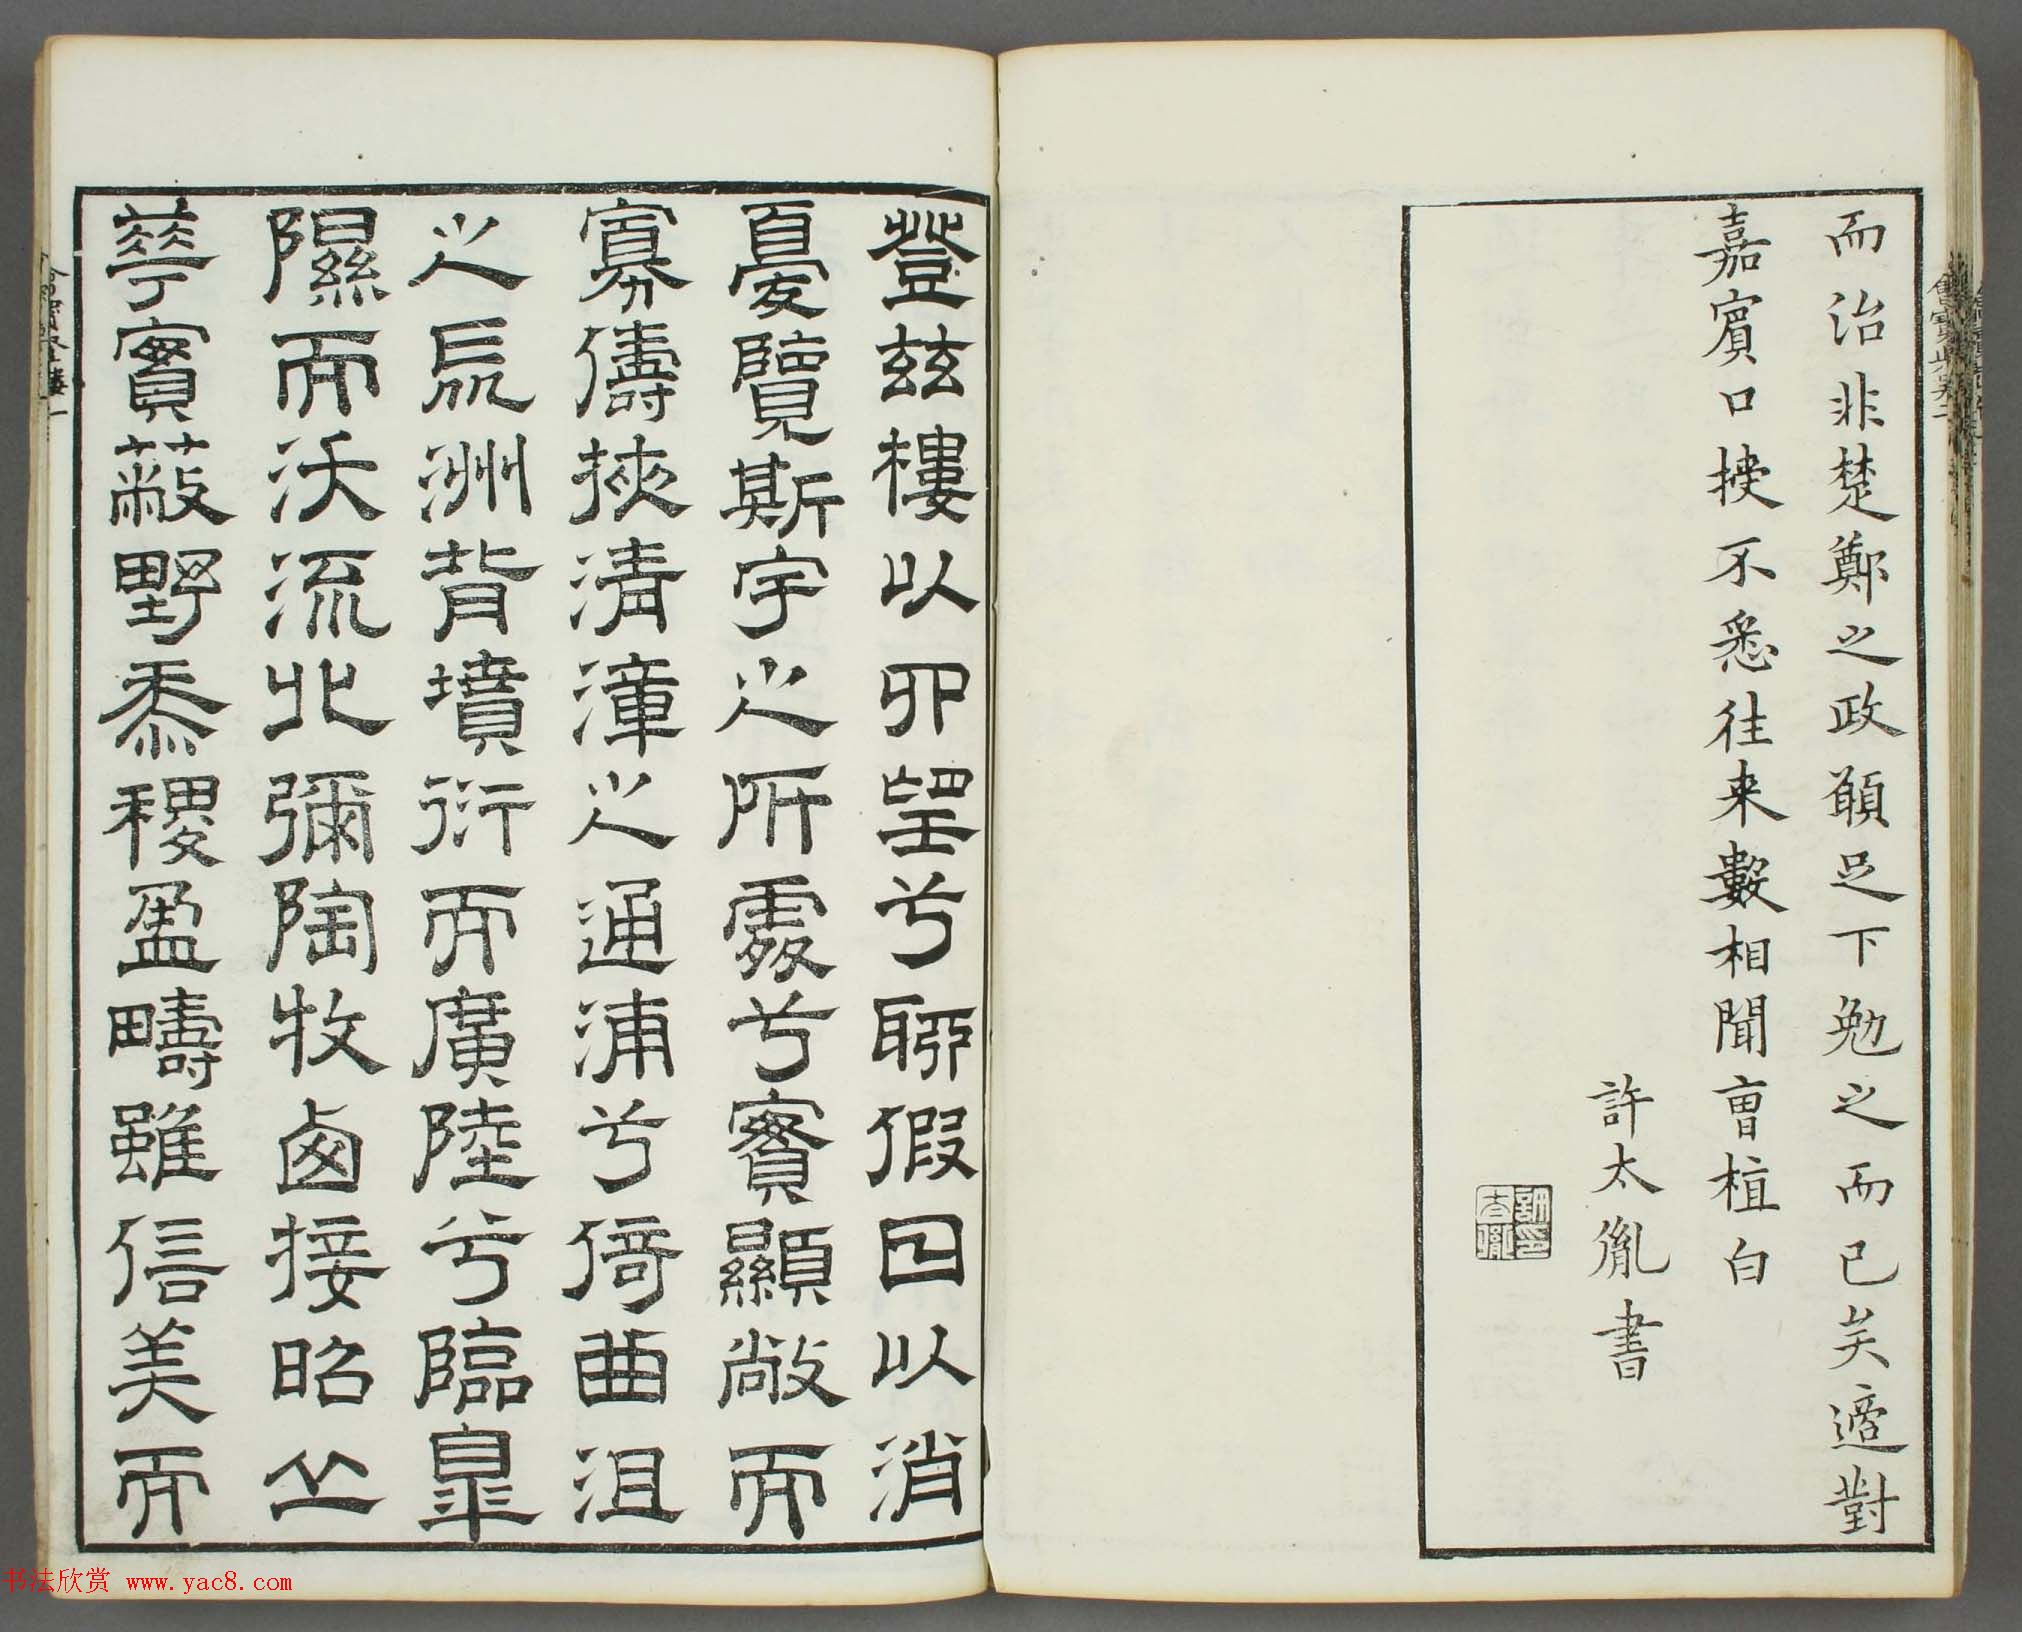 而治非楚鄭之政願足下勉之而已矣適對
嘉賓口授不悉往来數相聞曹植白
許太胤書
登玆樓以卬望兮聊假日以消
憂覽斯宇之所處兮實顯敞而
寡儔挾淸漳之通浦兮倚曲沮
之長洲背墳衍而廣陸兮臨皐
隰而沃流北彌陶牧鹵接昭丘
華實蔽野黍稷盈疇雖信美而
书法欣赏 www.yac8.com